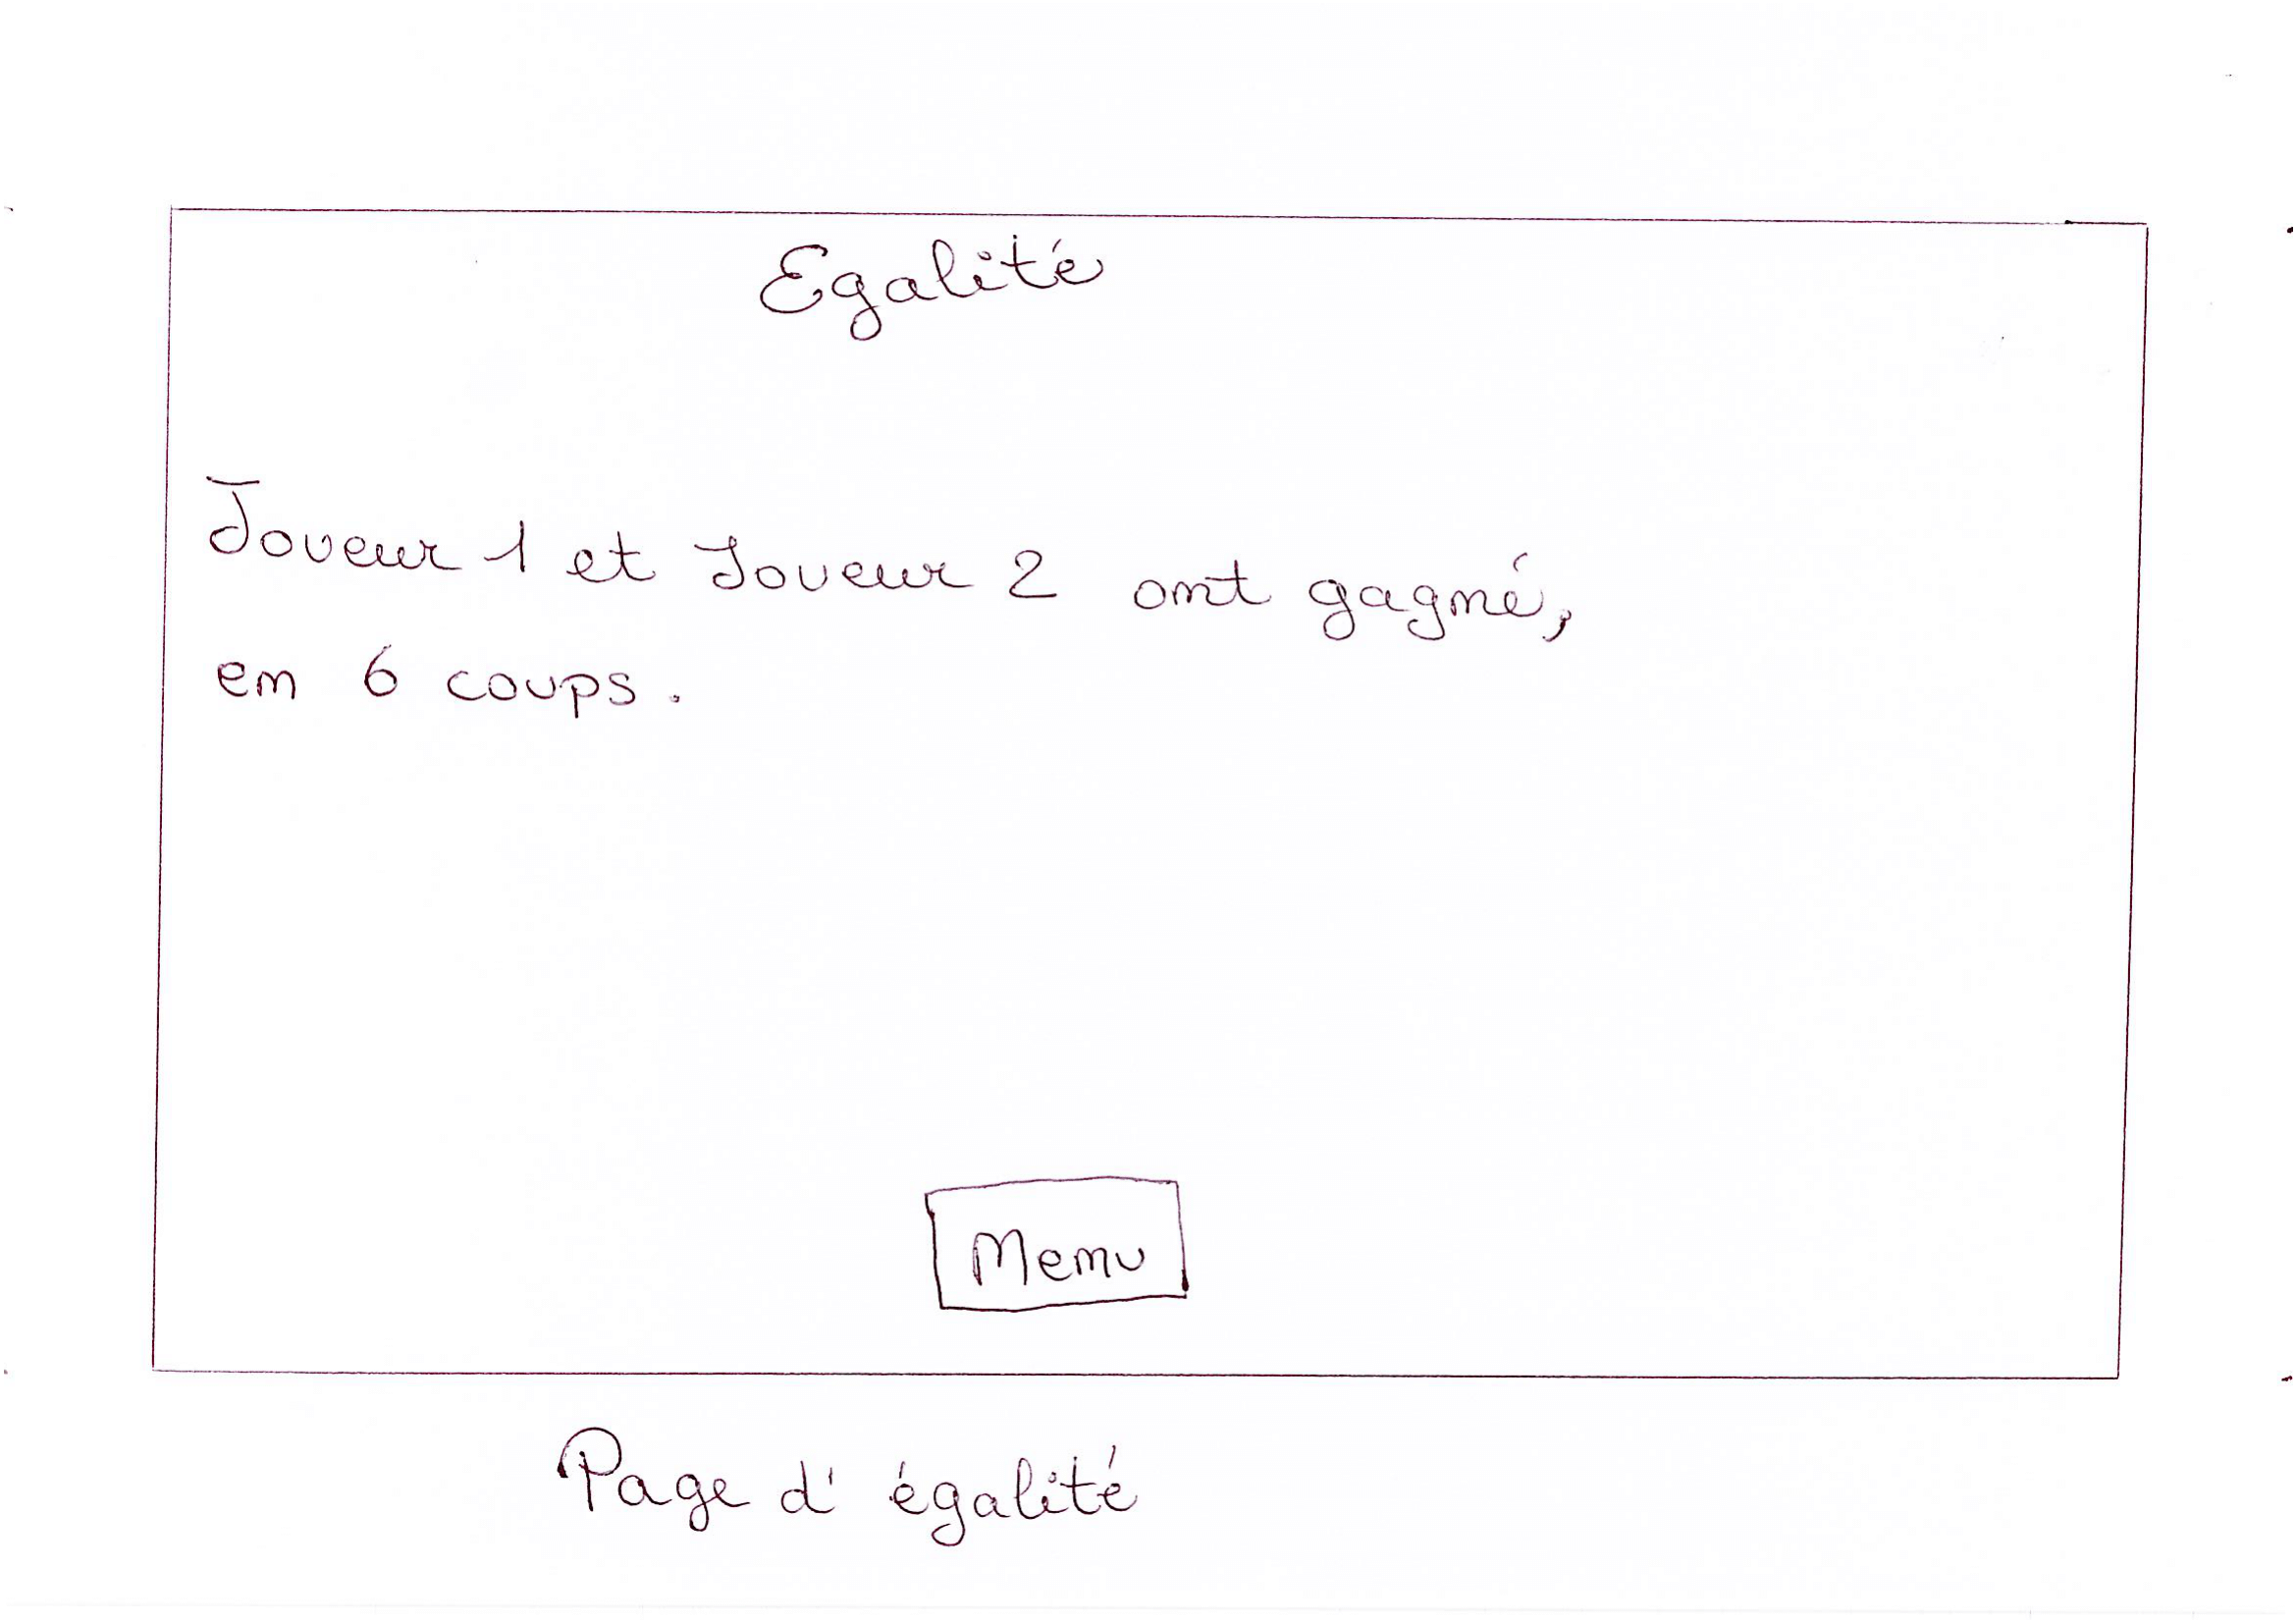 Egalité
Joueur 1 et Joueur 2 ont gagné,
en 6 coups.
Menu
Page d'égalité